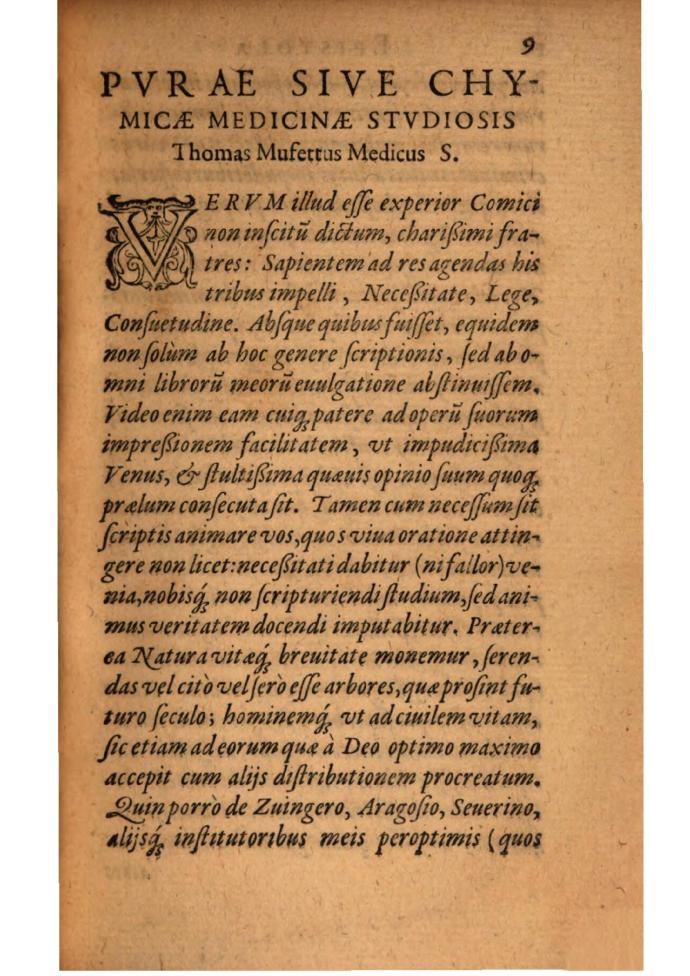 9
PVRAE SIVE CHY-
MICÆ MEDICINÆ STVDIOSIS
Thomas Mufettus Medicus S.
VERVM illud eſſe experior Comici
non inſcitũ dictum, charißimi fra-
tres: Sapientem ad res agendas his
tribus impelli, Neceßitate, Lege,
Conſuetudine. Abſque quibus fuiſſet, equidem
non ſolùm ab hoc genere ſcriptionis, ſed ab o-
mni librorũ meorũ euulgatione abſtinuiſſem.
Video enim eam cuiq; patere ad operũ ſuorum
impreßionem facilitatem, vt impudicißima
Venus, & ſtultißima quæuis opinio ſuum quoq;
prælum conſecuta ſit. Tamen cum neceſſum ſit
ſcriptis animare vos, quos viua oratione attin-
gere non licet: neceßitati dabitur (ni fallor) ve-
nia, nobisq́; non ſcripturiendi ſtudium, ſed ani-
mus veritatem docendi imputabitur. Præter-
ea Natura vitæq́; breuitate monemur, ſeren-
das vel citò vel ſerò eſſe arbores, quæ proſint fu-
turo ſeculo; hominemq́; vt ad ciuilem vitam,
ſic etiam ad eorum quæ à Deo optimo maximo
accepit cum alijs diſtributionem procreatum.
Quin porrò de Zuingero, Aragoſio, Seuerino,
alijsq́; inſtitutoribus meis peroptimis (quos